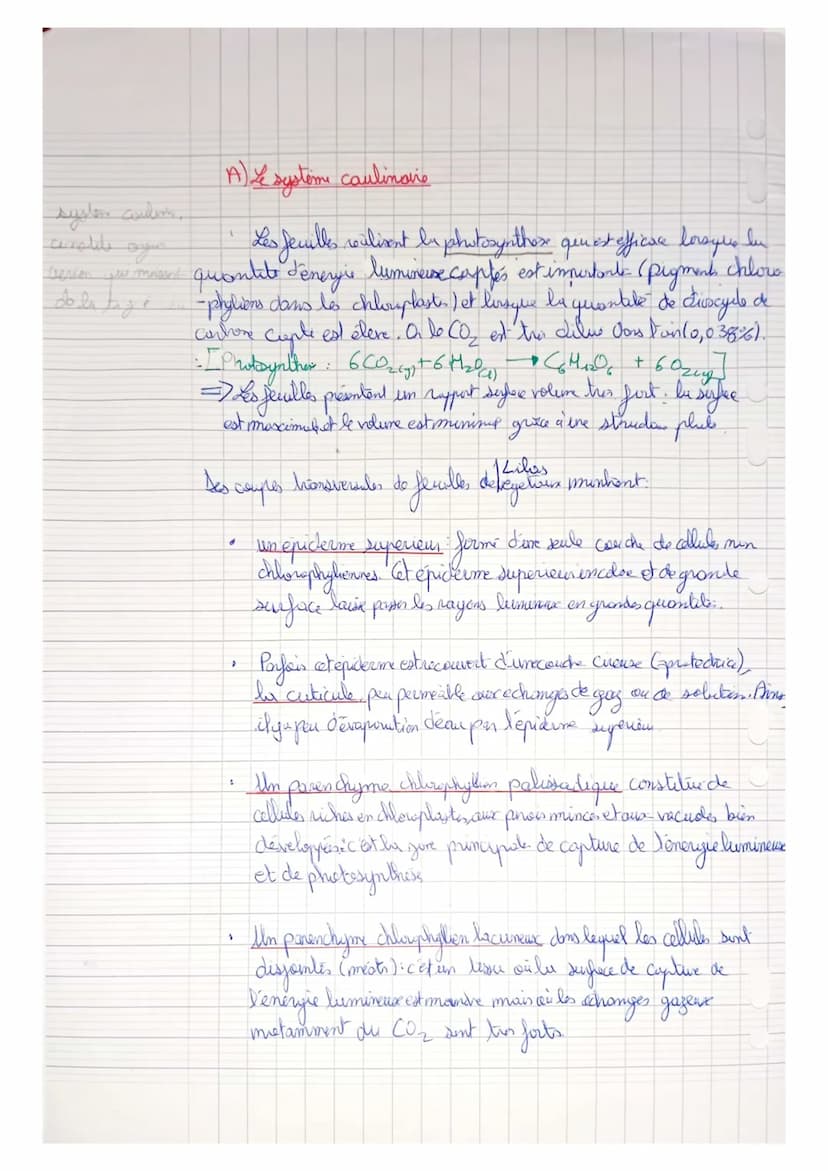 A) Le système caulinaire
system caulin.
Les feuilles réalisent la photosynthèse qui est efficace lorsque la
quantité d'énergie lumineuse captés est importante (pigments chloro
-phyliens dans les chloroplastes) et lorsque la quantité de dioxyde de
carbone capté est élevé. Or le CO2 est très dilué dans l'air (0,038%).
[Photosynthèse : 6CO2(g) + 6H2O(l) → C6H12O6 + 6O2(g)]
=> Les feuilles présentent un rapport surface volume très fort. La surface
est maximal et le volume est minime grâce à une structure plate
Lilas
Des coupes transversales de feuilles de végétaux montrent:
• un épiderme supérieur : formé d'une seule couche de cellules non
chlorophyliennes. Cet épiderme supérieur incolore et de grande
surface laisse passer les rayons lumineux en grandes quantités.
• Parfois cet épiderme est recouvert d'une couche cireuse (=protectrice),
la cuticule, peu perméable aux échanges de gaz ou de solution. Ainsi
il y a peu d'évaporation d'eau par l'épiderme supérieur
• Un parenchyme chlorophyllien palissadique constitué de
cellules riches en chloroplastes, aux parois minces et aux vacuoles bien
développées : c'est la zone principale de capture de l'énergie lumineuse
et de photosynthèse
• Un parenchyme chlorophyllien lacuneux dans lequel les cellules sont
disjointes (méats) : c'est un tissu où la surface de capture de
l'énergie lumineuse est moindre mais où les échanges gazeux
notamment du CO2 sont très forts.